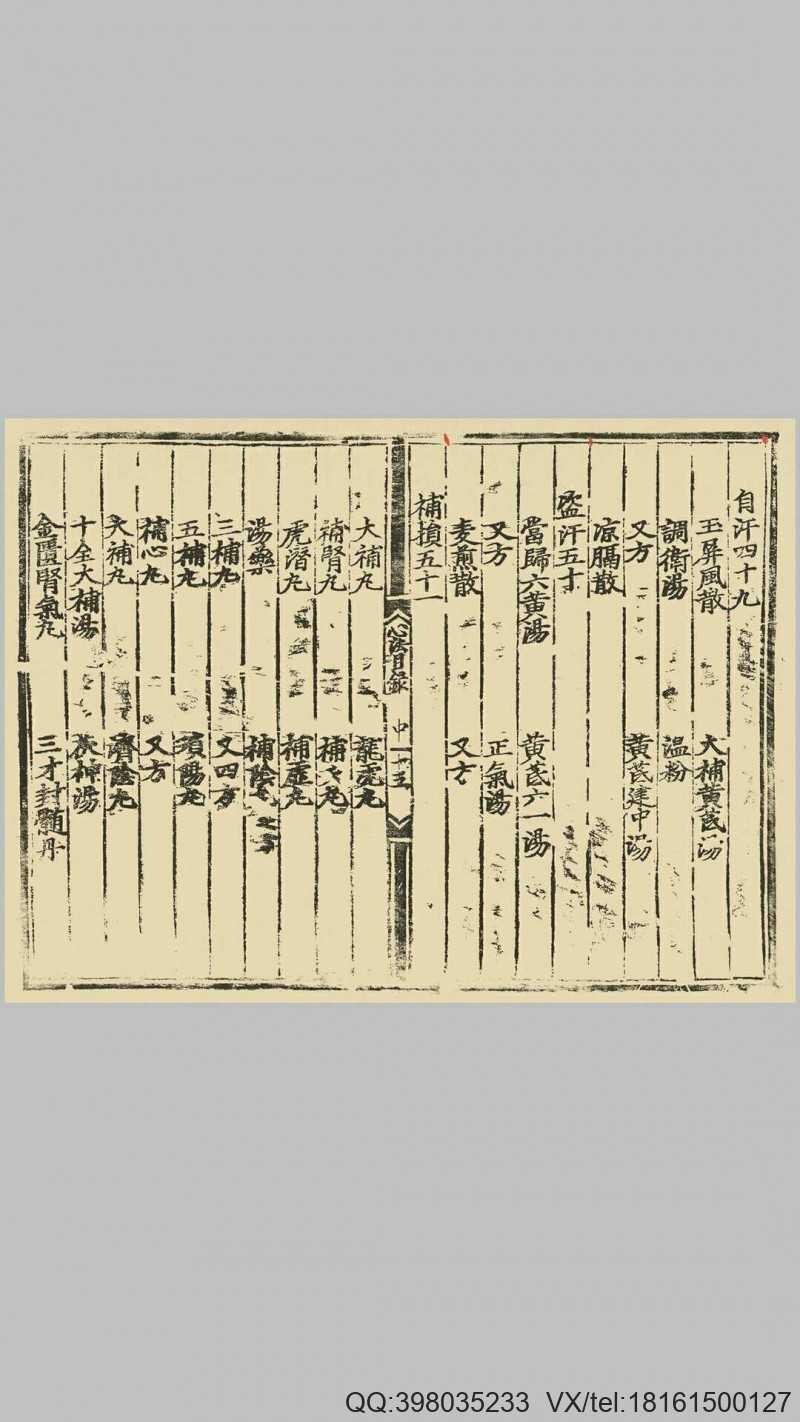 自汗四十九
玉屏風散 大補黃茋湯
調衛湯 温粉
又方 黃茋建中湯
凉膈散
盗汗五十
當歸六黃湯 黃茋六一湯
又方 正氣湯
麦煎散 又方
補損五十一
心法目錄 中 十五
大補丸 龍虎丸
補腎丸 補天丸
虎潛丸 補虛丸
湯藥 補陰丸
三補丸 又四方
五補丸 湏陽丸
補心丸 又方
大補丸 濟陰丸
十全大補湯 茯神湯
金匱腎氣丸 三才封髓丹
QQ:398035233 VX/tel:18161500127